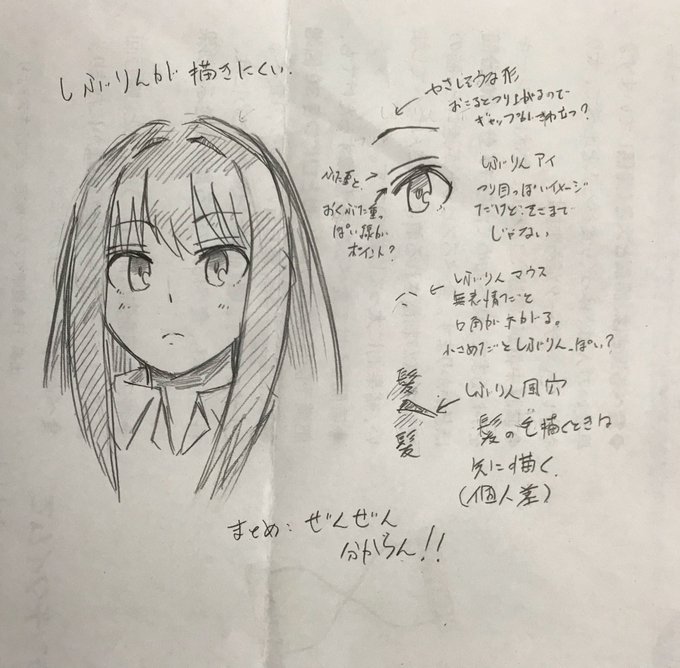 しぶりんが描きにくい.
やさしそうな形
おこるとつり上がるので
ギャップがきわ立つ?
ふた重と、
おくぶた重。
ぽい線が
ポイント?
しぶりん アイ
つり目っぽいイメージ
だけど、そこまで
じゃない
しぶりん マウス
無表情だと
口角が下がる。
小さめだとしぶりんっぽい?
髪
髪
しぶりん風穴
髪の毛描くときは
先に描く.
(個人差)
まとめ: ぜんぜん
分からん!!